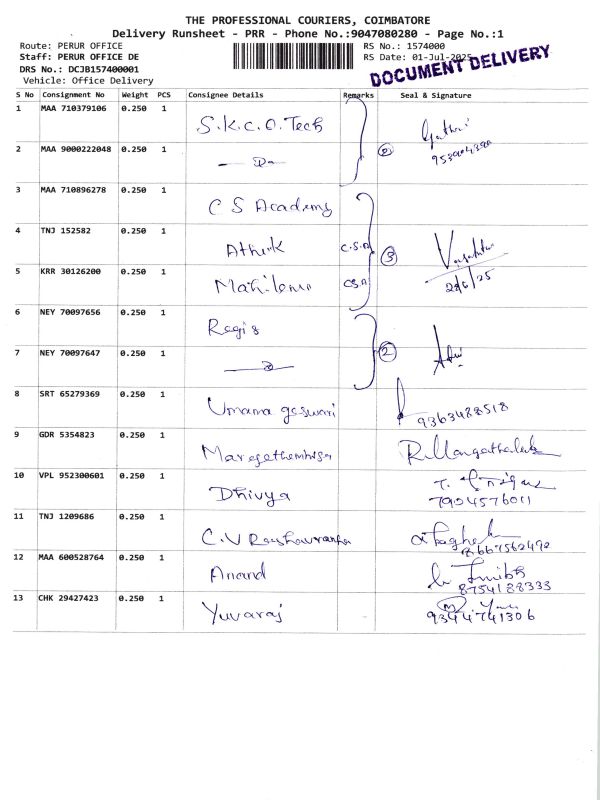 THE PROFESSIONAL COURIERS, COIMBATORE
Delivery Runsheet - PRR - Phone No.:9047080280 - Page No.:1
Route: PERUR OFFICE RS No.: 1574000
Staff: PERUR OFFICE DE RS Date: 01-Jul-2025
DRS No.: DCJB157400001
Vehicle: Office Delivery
DOCUMENT DELIVERY
S No Consignment No Weight PCS Consignee Details Remarks Seal & Signature
1 MAA 710379106 0.250 1 S.K.C.O.Tech
2 MAA 9000222048 0.250 1 Do 2
3 MAA 710896278 0.250 1 C S Academy
4 TNJ 152582 0.250 1 Athik C.S.A 3
5 KRR 30126200 0.250 1 CSA
6 NEY 70097656 0.250 1 Regis
7 NEY 70097647 0.250 1 2
8 SRT 65279369 0.250 1 Umama geswari 9363488518
9 GDR 5354823 0.250 1
10 VPL 952300601 0.250 1 Dhivya 7904576011
11 TNJ 1209686 0.250 1 C.V 8667562492
12 MAA 600528764 0.250 1 Anand 8754188333
13 CHK 29427423 0.250 1 Yuvaraj 9344741306